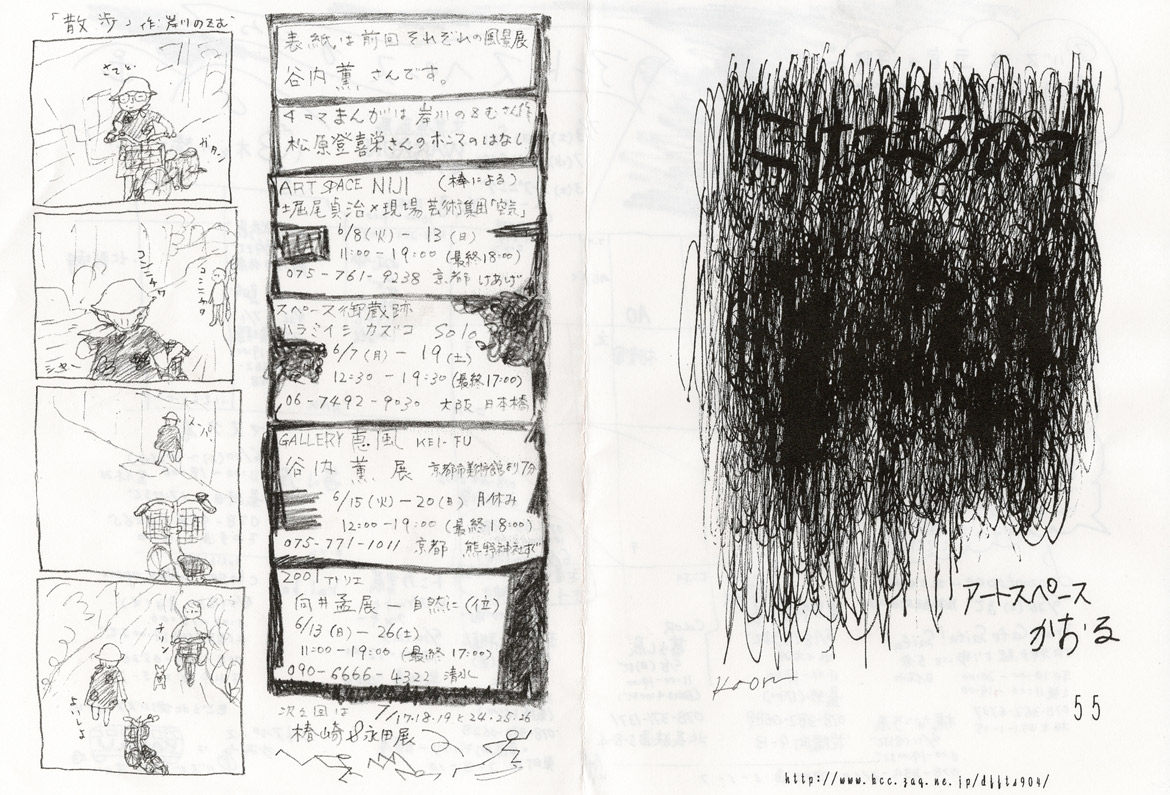 「散歩」作:岸川のぞむ
さてと
ガタン
コンニチワ
コンニチワ
シャー
スーパ
チリン
よいしょ
表紙は前回それぞれの風景展
谷内薫さんです。
4コマまんがは岸川のぞむさん作
松原登喜栄さんのホンマのはなし
ART SPACE NIJI (棒による)
堀尾貞治×現場芸術集団「空気」
6/8(火)-13(日)
11:00-19:00(最終18:00)
075-761-9238 京都 けあげ
スペース御蔵跡
ハラダイシ カズコ Solo
6/7(月)-19(土)
12:30-19:30(最終17:00)
06-7492-9030 大阪 日本橋
GALLERY 恵風 KEI-FU
谷内薫展 京都市美術館より7分
6/15(火)-20(日) 月休み
12:00-19:00(最終18:00)
075-771-1011 京都 熊野神社
2001アトリエ
向井孟展-自然に(位)
6/13(日)-26(土)
11:00-19:00(最終17:00)
090-6666-4322 清水
次々回は 7/17・18・19と24・25・26
椿崎 永田展
こけつまろびつ
アートスペース
かおる
Kaoru
55
http://www.kcc.zaq.ne.jp/dfftd904/